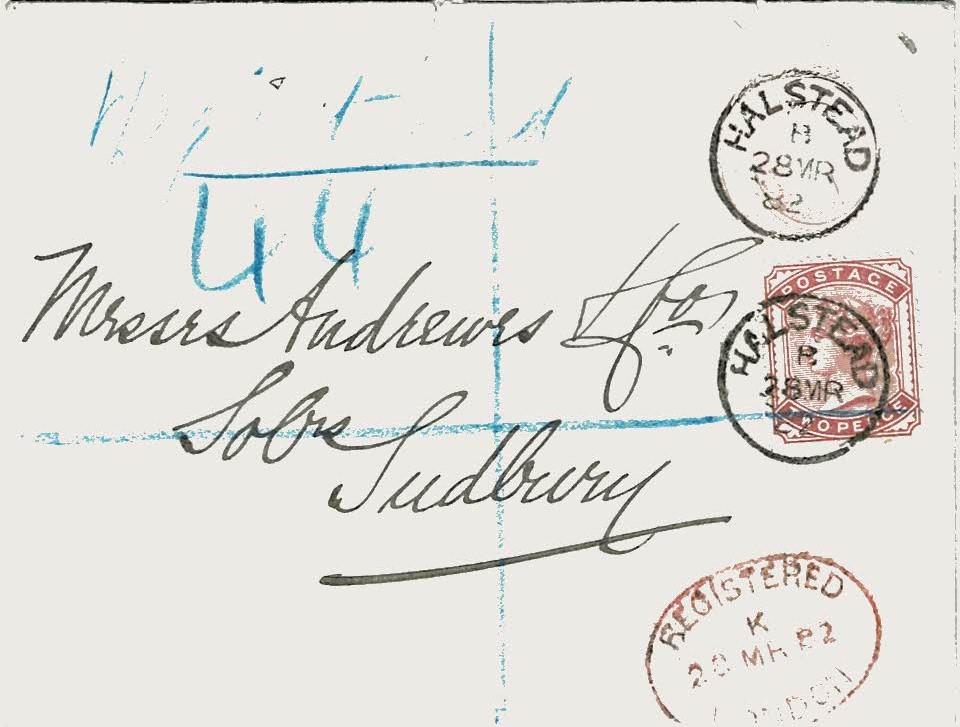 44
Messrs Andrewes &
Solrs
Sudbury
HALSTEAD
B
28 MR
82
POSTAGE
HALSTEAD
B
28 MR
REGISTERED
K
28 MR 82
LONDON